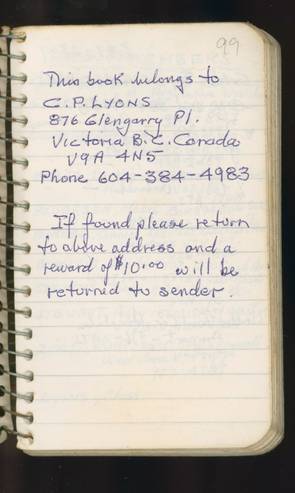 99
This book belongs to
C.P. LYONS
876 Glengarry Pl.
Victoria B.C. Canada
V9A 4N5
Phone 604-384-4983
If found please return
to above address and a
reward of $10.00 will be
returned to sender.